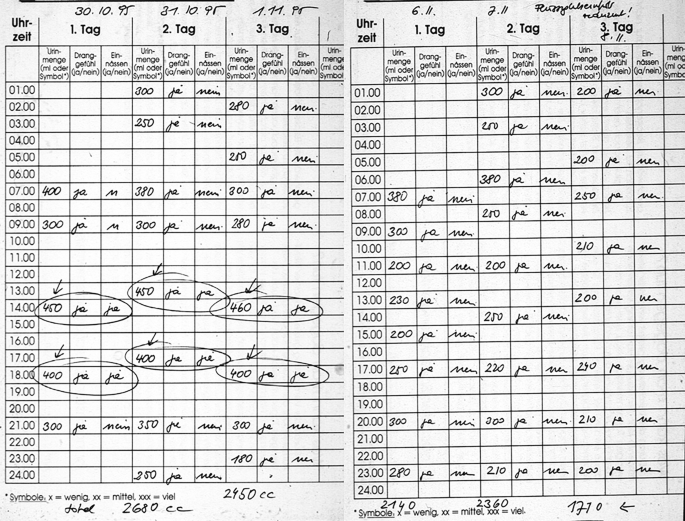 30.10.95 31.10.95 1.11.95
Uhr-zeit 1. Tag 2. Tag 3. Tag
Urin-menge (ml oder Symbol*) Drang-gefühl (ja/nein) Ein-nässen (ja/nein) Urin-menge (ml oder Symbol*) Drang-gefühl (ja/nein) Ein-nässen (ja/nein) Urin-menge (ml oder Symbol*) Drang-gefühl (ja/nein) Ein-nässen (ja/nein)
01.00 300 ja nein
02.00 280 ja nein
03.00 250 ja nein
04.00
05.00 250 ja nein
06.00
07.00 400 ja n 380 ja nein 300 ja nein
08.00
09.00 300 ja n 300 ja nein 280 ja nein
10.00
11.00
12.00
13.00 450 ja ja
14.00 450 ja ja 460 ja ja
15.00
16.00
17.00 400 ja ja
18.00 400 ja ja 400 ja ja
19.00
20.00
21.00 300 ja nein 350 ja nein 300 ja nein
22.00
23.00 180 ja nein
24.00 250 ja nein
*Symbole: x = wenig, xx = mittel, xxx = viel
total 2680 cc 2450 cc
6.11. 7.11 reduziert!
8.11.
Uhr-zeit 1. Tag 2. Tag 3. Tag
Urin-menge (ml oder Symbol*) Drang-gefühl (ja/nein) Ein-nässen (ja/nein) Urin-menge (ml oder Symbol*) Drang-gefühl (ja/nein) Ein-nässen (ja/nein) Urin-menge (ml oder Symbol*) Drang-gefühl (ja/nein) Ein-nässen (ja/nein)
01.00 300 ja nein 200 ja nein
02.00
03.00 250 ja nein
04.00
05.00 200 ja nein
06.00 380 ja nein
07.00 380 ja nein 250 ja nein
08.00 250 ja nein
09.00 300 ja nein
10.00 210 ja nein
11.00 200 ja nein 200 ja nein
12.00
13.00 230 ja nein 200 ja nein
14.00 250 ja nein
15.00 200 ja nein
16.00
17.00 250 ja nein 220 ja nein 240 ja nein
18.00
19.00
20.00 300 ja nein 300 ja nein 210 ja nein
21.00
22.00
23.00 280 ja nein 210 ja nein 200 ja nein
24.00
2140 2360 1710 ←
*Symbole: x = wenig, xx = mittel, xxx = viel.